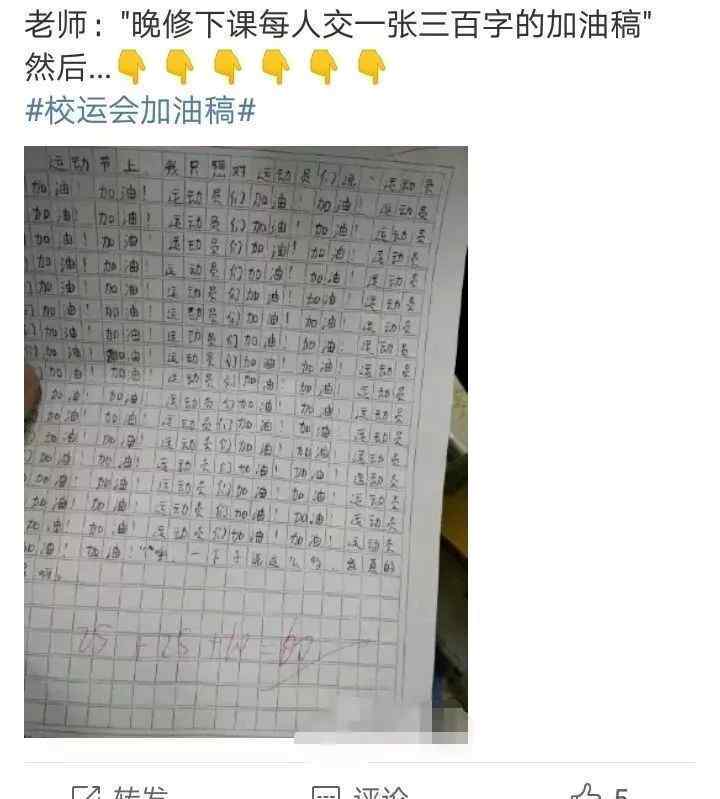 老师："晚修下课每人交一张三百字的加油稿"
然后...👇👇👇👇👇👇
#校运会加油稿#
运动节上，我只想对运动员们说，运动员
加油！加油！运动员们加油！加油！运动员
加油！加油！运动员们加油！加油！运动员
加油！加油！运动员们加油！加油！运动员
们加油！加油！运动员们加油！加油！运动员
们加油！加油！运动员们加油！加油！运动员
们加油！加油！运动员们加油！加油！运动员
们加油！加油！运动员们加油！加油！运动员
们加油！加油！运动员们加油！加油！运动员
们加油！加油！运动员们加油！加油！运动员
加油！加油！运动员们加油！加油！运动员
加油！加油！运动员们加油！加油！运动员
加油！加油！运动员们加油！加油！运动员
们加油！加油！运动员们加油！加油！运动员
加油！加油！运动员们加油！加油！运动员
加油！加油！运动员们加油！加油！运动员
加油！加油！运动员们加油！加油！运动员
加油！加油！一下子说这么多，我真的
25+25+10=60
转发 评论 5